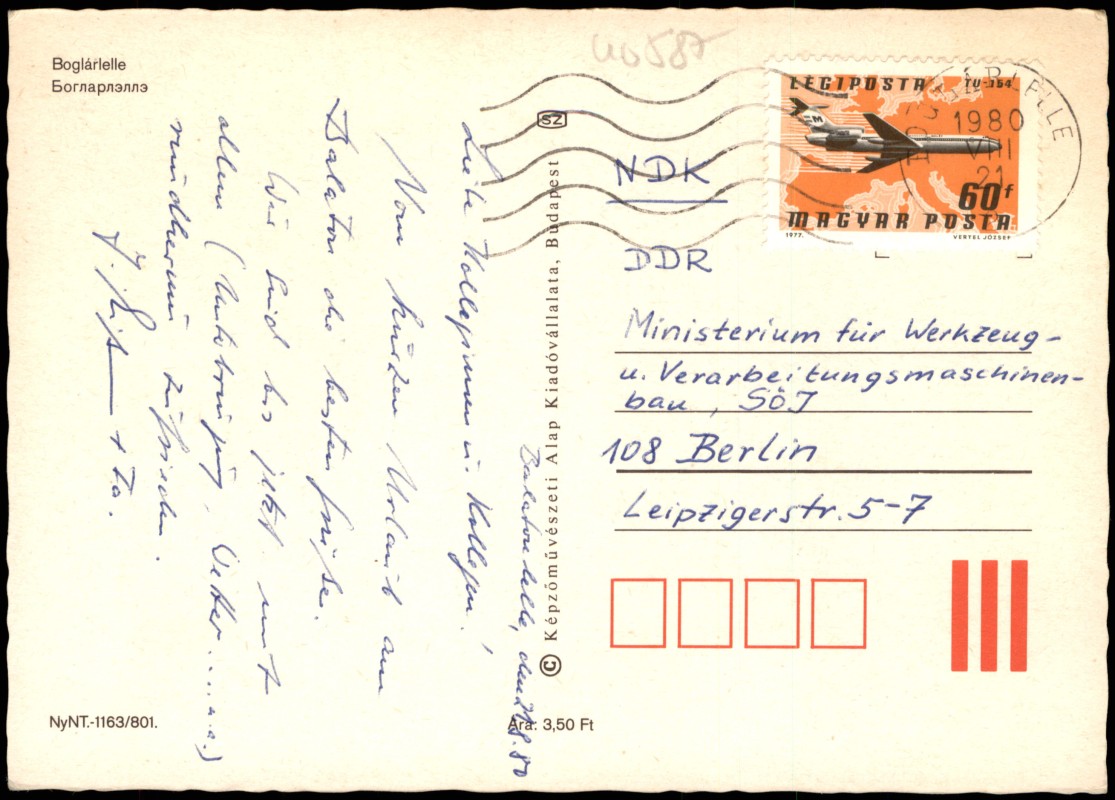 Boglárlelle
Богларлэллэ
40587
LÉGIPOSTA TU-154
M
60f
MAGYAR POSTA
1977. VERTEL JÓZSEF
BOGLÁRLELLE
1980
VIII
21
SZ
© Képzőművészeti Alap Kiadóvállalata, Budapest
NDK
DDR
Ministerium für Werkzeug-
u. Verarbeitungsmaschinen-
bau, SÖJ
108 Berlin
Leipzigerstr. 5-7
Balatonlelle, den 21.8.80
Liebe Kolleginnen u. Kollegen!
Vom kurzen Urlaub am
Balaton die besten Grüße.
Wir sind bis jetzt mit
allem (Unterbringung, Wetter.... u.a.)
rundherum zufrieden.
+ Fa.
NyNT.-1163/801.
Ára: 3,50 Ft